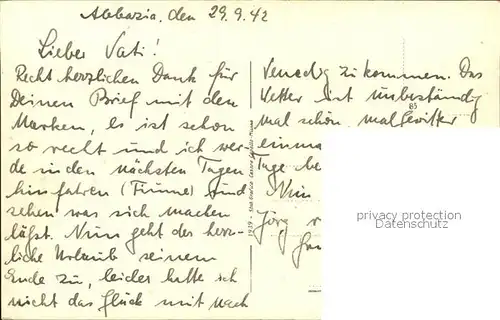 Abbazia, den 29.9.42
Lieber Vati!
Recht herzlichen Dank für
Deinen Brief mit den
Marken, es ist schon
so recht und ich wer-
de in den nächsten Tagen
hinfahren (Fiume) und
sehen was sich machen
läßt. Nun geht der herr-
liche Urlaub seinem
Ende zu, leider hatte ich
nicht das Glück mit nach
Venedig zu kommen. Das
Wetter ist unbeständig
mal schön, mal Gewitter
einma
Tage be
Nun
Jörg
85
privacy protection
Datenschutz